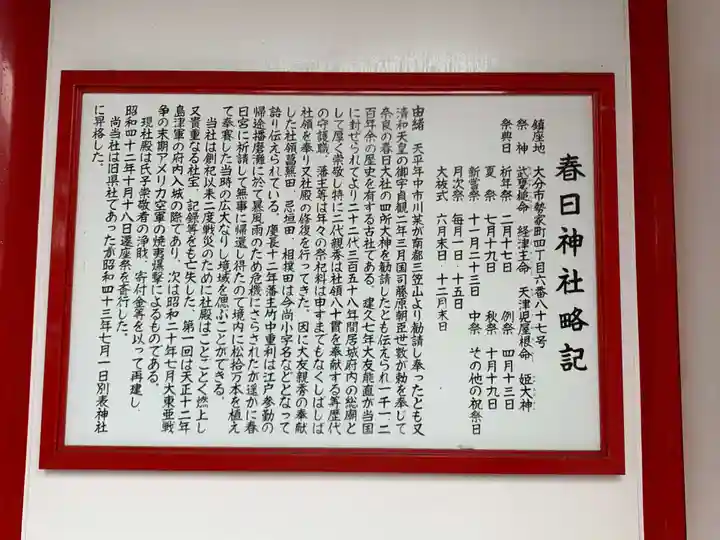 春日神社略記
鎮座地 大分市勢家町四丁目六番八十七号
祭神 武甕槌命 経津主命 天津児屋根命 姫大神
祭典日 祈年祭 二月十七日 例祭 四月十三日
夏祭 七月十九日 秋祭 十月十九日
新嘗祭 十一月二十三日 中祭 その他の祝祭日
月次祭 毎月一日・十五日
大祓式 六月末日・十二月末日
由緒 天平年中市川某が南都三笠山より勧請し奉ったとも又
清和天皇の御宇貞観二年三月国司藤原朝臣世数が勅を奉じて
奈良の春日大社の四所大神を勧請したとも伝えられ一千一、二
百年余の歴史を有する古社である。建久七年大友能直が当国
に封ぜられてより二十二代三百五十八年間居城府内の総廟と
して厚く崇敬し特に二代親秀は社領八十貫を奉献する等歴代
の守護職、藩主等は年々の祭祀料は申すまでもなくしばしば
社領を奉り又社殿の修復を行ってきた。因に大友親秀の奉献
した社領菖蒲田、忌垣田、相撲田は今尚小字名などとなって
語り伝えられている。慶長十二年藩主竹中重利は江戸参勤の
帰途播磨灘に於て暴風雨のため危機にさらされたが遥かに春
日宮に祈請して無事に帰還し得たので境内に松拾万本を植え
て奉賽した当時の広大なりし境域を偲ぶことができる。
当社は創祀以来二度戦災のために社殿はことごとく燃上し
又貴重なる社宝、記録等をも亡失した。第一回は天正十二年
島津軍の府内入城の際であり、次は昭和二十年七月大東亜戦
争の末期アメリカ空軍の焼夷爆撃によるものである。
現社殿は氏子崇敬者の浄財、寄付金等を以って再建し、
昭和四十二年十月十八日遷座祭を斎行した。
尚当社は旧県社であったが昭和四十三年七月一日別表神社
に昇格した。